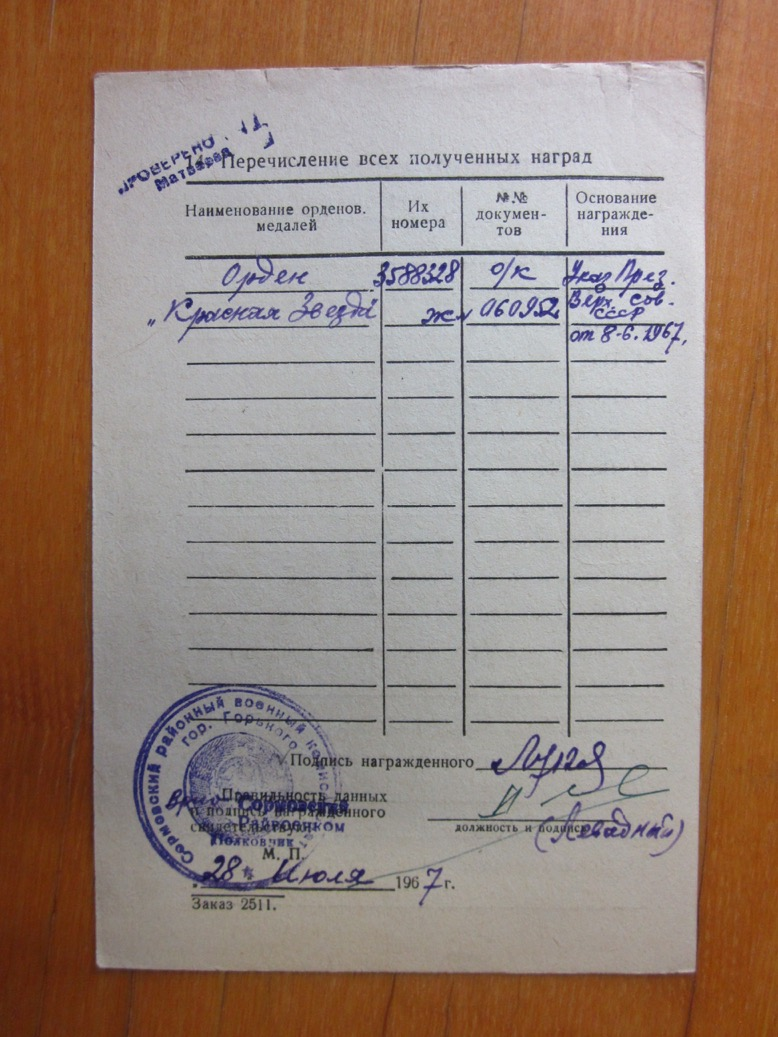 ПРОВЕРЕНО
Матвеева
7. Перечисление всех полученных наград
Наименование орденов. медалей
Их номера
№№ докумен-тов
Основание награжде-ния
Орден 3588328 о/к Указ През.
„Красная Звезда" жл 060952 Верх. Сов.
СССР
от 8-6. 1967,
Сормовский районный военный комиссариат
гор. Горького
Подпись награжденного
Правильность данных
и подпись награжденного
свидетельствую:
Врио Сормовский
Райвоенком
Полковник
должность и подпись
(Левадный)
М. П.
28 Июля 1967 г.
Заказ 2511.